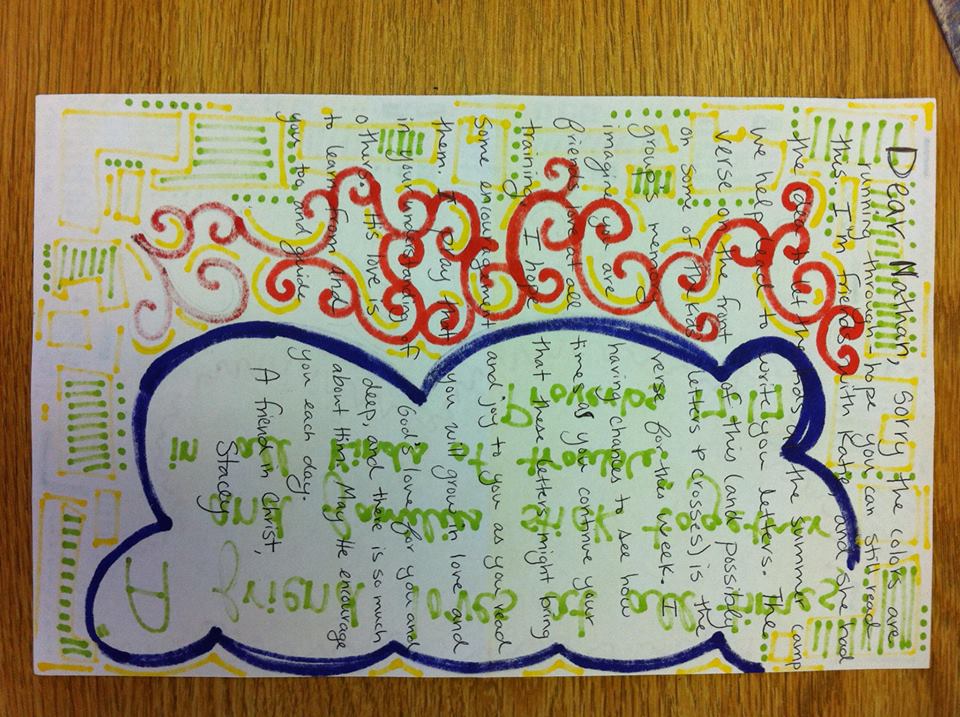 Dear Nathan, sorry the colors are
running through, hope you can still read
this. I'm friends with Katie and she had
the idea to let the kids at the summer camp
we helped lead to write you letters. The
verse on the front of this (and possibly
on some of the kids letters & crosses) is the
group's memory verse for this week. I
imagine you are having chances to see how
friends love at all times as you continue your
training. I hope that these letters might bring
some encouragement and joy to you as you read
them. I pray that you will grow in love and
in your understanding of God's love for you and
others. His love is deep, and there is so much
to learn from and about him. May He encourage
you too, and guide you each day.
A friend in Christ,
Stacey
A friend loves at all times
and stick together
in all kinds of trouble
Proverbs 17:17